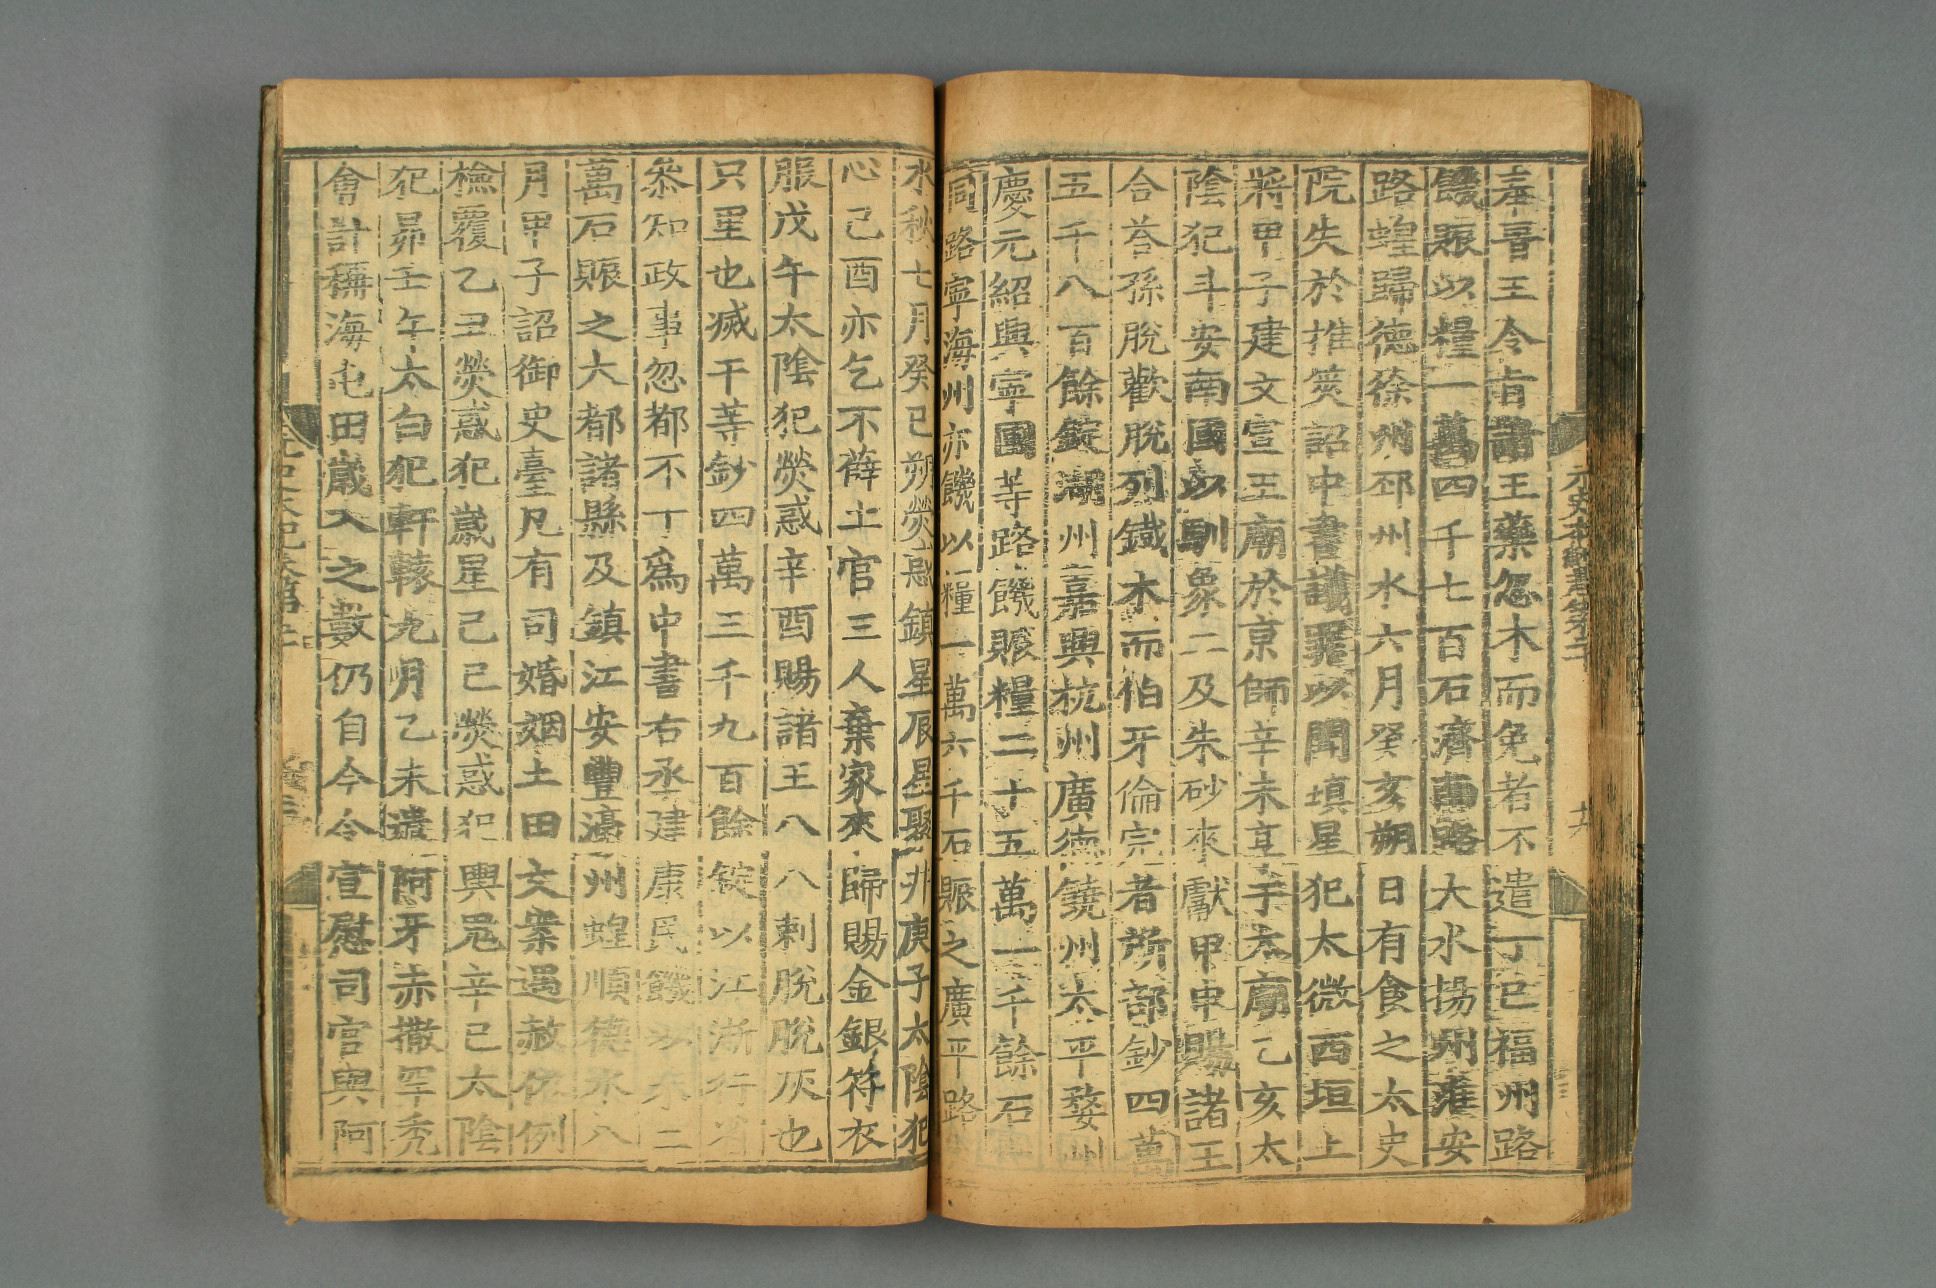 奉晉王令旨諸王藥忽木而免者不遣丁巳福州路
饑賑以糧一萬四千七百石濟南路大水揚州淮安
路蝗歸德徐州邳州水六月癸亥朔日有食之太史
院失於推筴詔中書議罪以聞填星犯太微西垣上
將甲子建文宣王廟於京師辛未享于太廟乙亥太
陰犯斗安南國以馴象二及朱砂來獻甲申賜諸王
合荅孫脫歡脫列鐵木而伯牙倫完者所部鈔四萬
五千八百餘錠湖州嘉興杭州廣德饒州太平婺州
慶元紹興寧國等路饑賑糧二十五萬一千餘石
同路寧海州亦饑以糧一萬六千石賑之廣平路
水秋七月癸巳朔熒惑鎮星辰星聚井庚子太陰犯
心己酉亦乞不薛土官三人棄家來歸賜金銀符衣
服戊午太陰犯熒惑辛酉賜諸王八八剌脫脫灰也
只里也滅干等鈔四萬三千九百餘錠以江浙行省
參知政事忽都不丁爲中書右丞建康民饑以米二
萬石賑之大都諸縣及鎮江安豐濠州蝗順德水八
月甲子詔御史臺凡有司婚姻土田文案遇赦依例
檢覆乙丑熒惑犯歲星己巳熒惑犯輿鬼辛巳太陰
犯昴壬午太白犯軒轅九月乙未遣阿牙赤撒罕禿
會計稱海屯田歲入之數仍自今令宣慰司官與阿